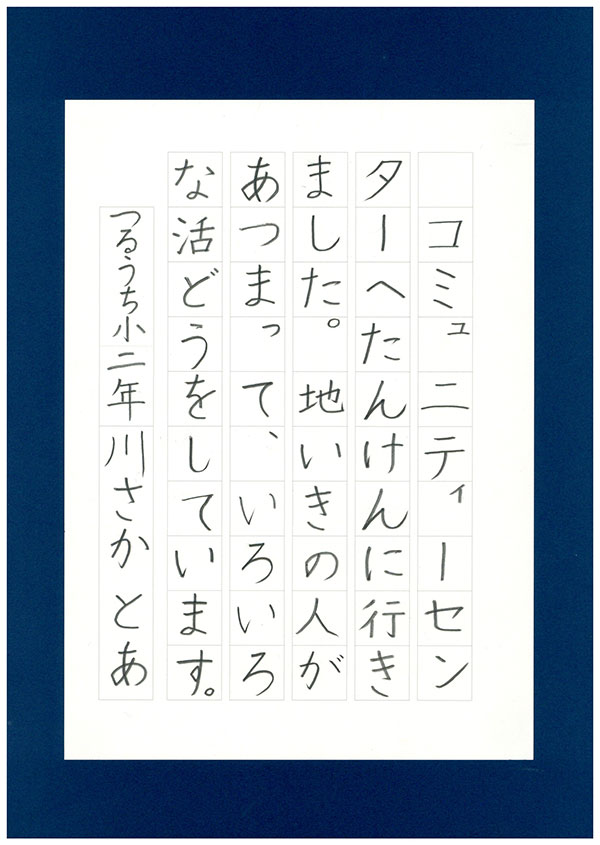 コミュニティーセン
ターへたんけんに行き
ました。地いきの人が
あつまって、いろいろ
な活どうをしています。
つるうち小二年川さかとあ